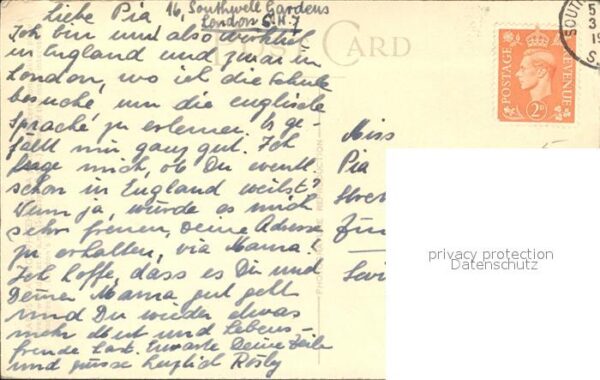 16, Southwell Gardens
London S.W.7
Liebe Pia
Ich bin nun also wirklich
in England und zwar in
London, wo ich die Schule
besuche, um die englische
Sprache zu erlernen. Es ge-
fällt mir ganz gut. Ich
frage mich, ob Du eventl.
schon in England weilst?
Wenn ja, würde es mich
sehr freuen, Deine Adresse
zu erhalten, via Mama!
Ich hoffe, dass es Dir und
Deiner Mama gut geht
und Du wieder etwas
mehr Mut und Lebens-
freude hast. Erwarte Deine Zeile
und grüsse herzlich Rösly
POST CARD
Miss
Pia
POSTAGE REVENUE
2D
privacy protection
Datenschutz